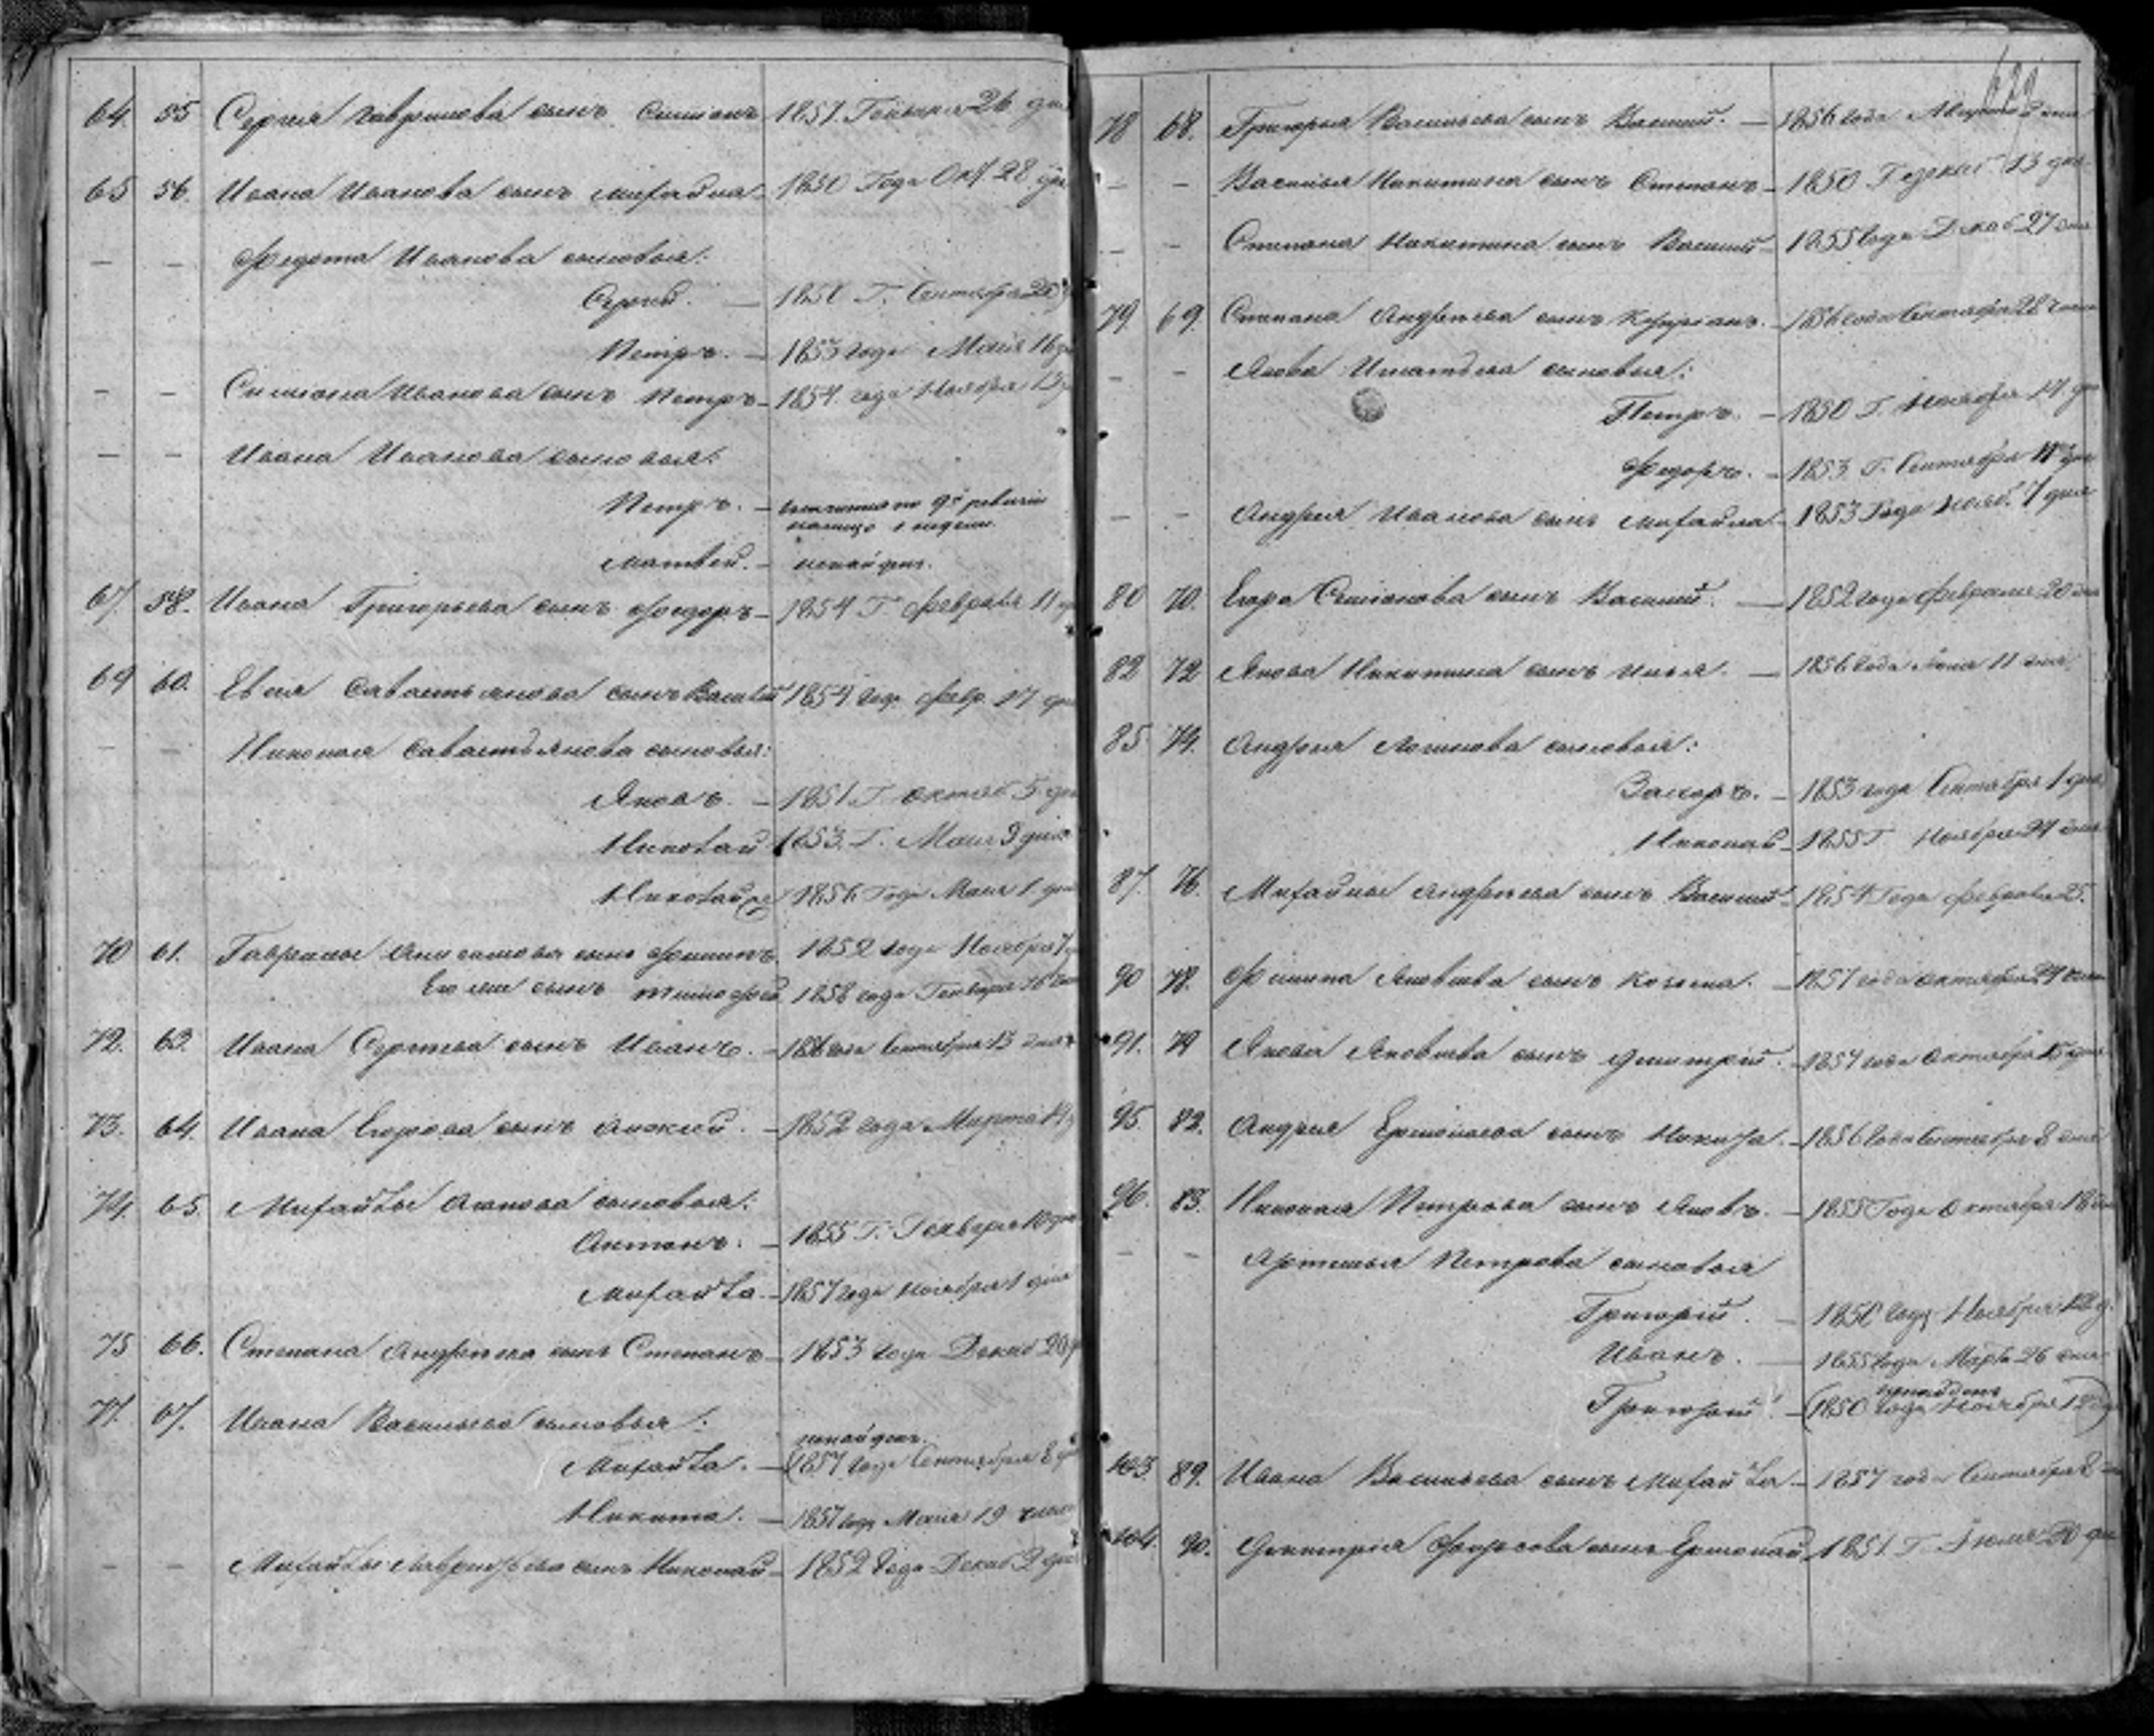 64. 55 Сергея Гавриилова сынъ Симіонъ 1851. Генваря 26 дня
65 56. Ивана Иванова сынъ Михайла. 1850 Года Окт 28 дня
— — Федота Иванова сыновья:
Сергей. — 1850 Г. Сентября 25
Петръ. — 1853 года Маія 16
— — Симіона Иванова сынъ Петръ — 1854 года Ноября 13
— — Ивана Иванова сыновья:
Петръ. — по 9й ревизіи
Матвей. — ненайден.
67. 58. Ивана Григорьева сынъ Федоръ — 1854 Г. Февраля 11
69 60. Евсея Савастьянова сынъ Василій 1854 год. Февр. 17 дня
— — Николая Савастьянова сыновья:
Яковъ. — 1851 Г. Октяб 5 дня
Николай 1853. Г. Маія 9 дня
Николай 1856 Года Маія 1 дня
70 61. Гаврилы Анисимова сынъ Филипъ 1852 года Ноября 7
Его же сынъ Тимофей 1858 года Генваря 16
72. 63. Ивана Сергеева сынъ Иванъ. — Сентября 13 дня
73. 64. Ивана Егорова сынъ Алексей. — 1852 года Марта 19
74. 65 Михайлы сыновья:
Антонъ. — 1855 Г. Генваря 10 дня
Михайла. — 1857 года Ноября 1 дня
75 66. Степана Андреева сынъ Степанъ — 1853 года Декаб 20
77. 67. Ивана Васильева сыновья:
ненайден.
Михайла. — (1857 года Сентября 8
Никита. — 1857 год. Маія 19 числа
— — Михайлы Лаврентьева сынъ Николай — 1852 Года Декаб 2 дня
78 68. Григорья Васильева сынъ Василий. — 1856 года Августа 2 дня
— — Василья Никитина сынъ Степанъ — 1850 Г. 13 дня
— — Степана Никитина сынъ Василий — 1855 года Декаб 27 дня
79 69. Степана Андреева сынъ Купріанъ. — 1856 года Сентября 28 числа
— — Якова Игнатьева сыновья:
Петръ. — 1850 Г. Ноября 14 дня
Федоръ. — 1853 Г. Сентября 11 дня
— — Андрея Иванова сынъ Михайла — 1853 Года Нояб. 7 дня
80 70. Егора Симіонова сынъ Василий. — 1852 года Февраля 20 дня
82 72 Якова Никитина сынъ Илья. — 1856 года 11 дня
85 74. Андрея Логинова сыновья:
Захаръ. — 1853 года Сентября 1 дня
Николай — 1855 Г Ноября 24 дня
87. 76. Михайлы Андреева сынъ Василий — 1854 Года Февраля 25.
90 78. Филипа Яковлева сынъ Козьма. — 1857 года Октября 24
91. 79 Якова Яковлева сынъ Дмитрій. — 1857 года Октября 15 дня
95 82. Андрея Ермолаева сынъ Никита. — 1856 года Сентября 8 дня
96. 83. Николая Петрова сынъ Яковъ. — 1855 Года Октября 18 дня
— — Артемья Петрова сыновья
Григорій. — 1850 года Ноября 12 д.
Иванъ. — 1855 года Марта 26 дня
ненайденъ
Григорій. — (1850 года Ноября 12)
103. 89. Ивана Васильева сынъ Михайла — 1857 года Сентября 8
104. 90. Дмитрія Фирсова сынъ Ермолай 1851. Г. Іюля 20 дня